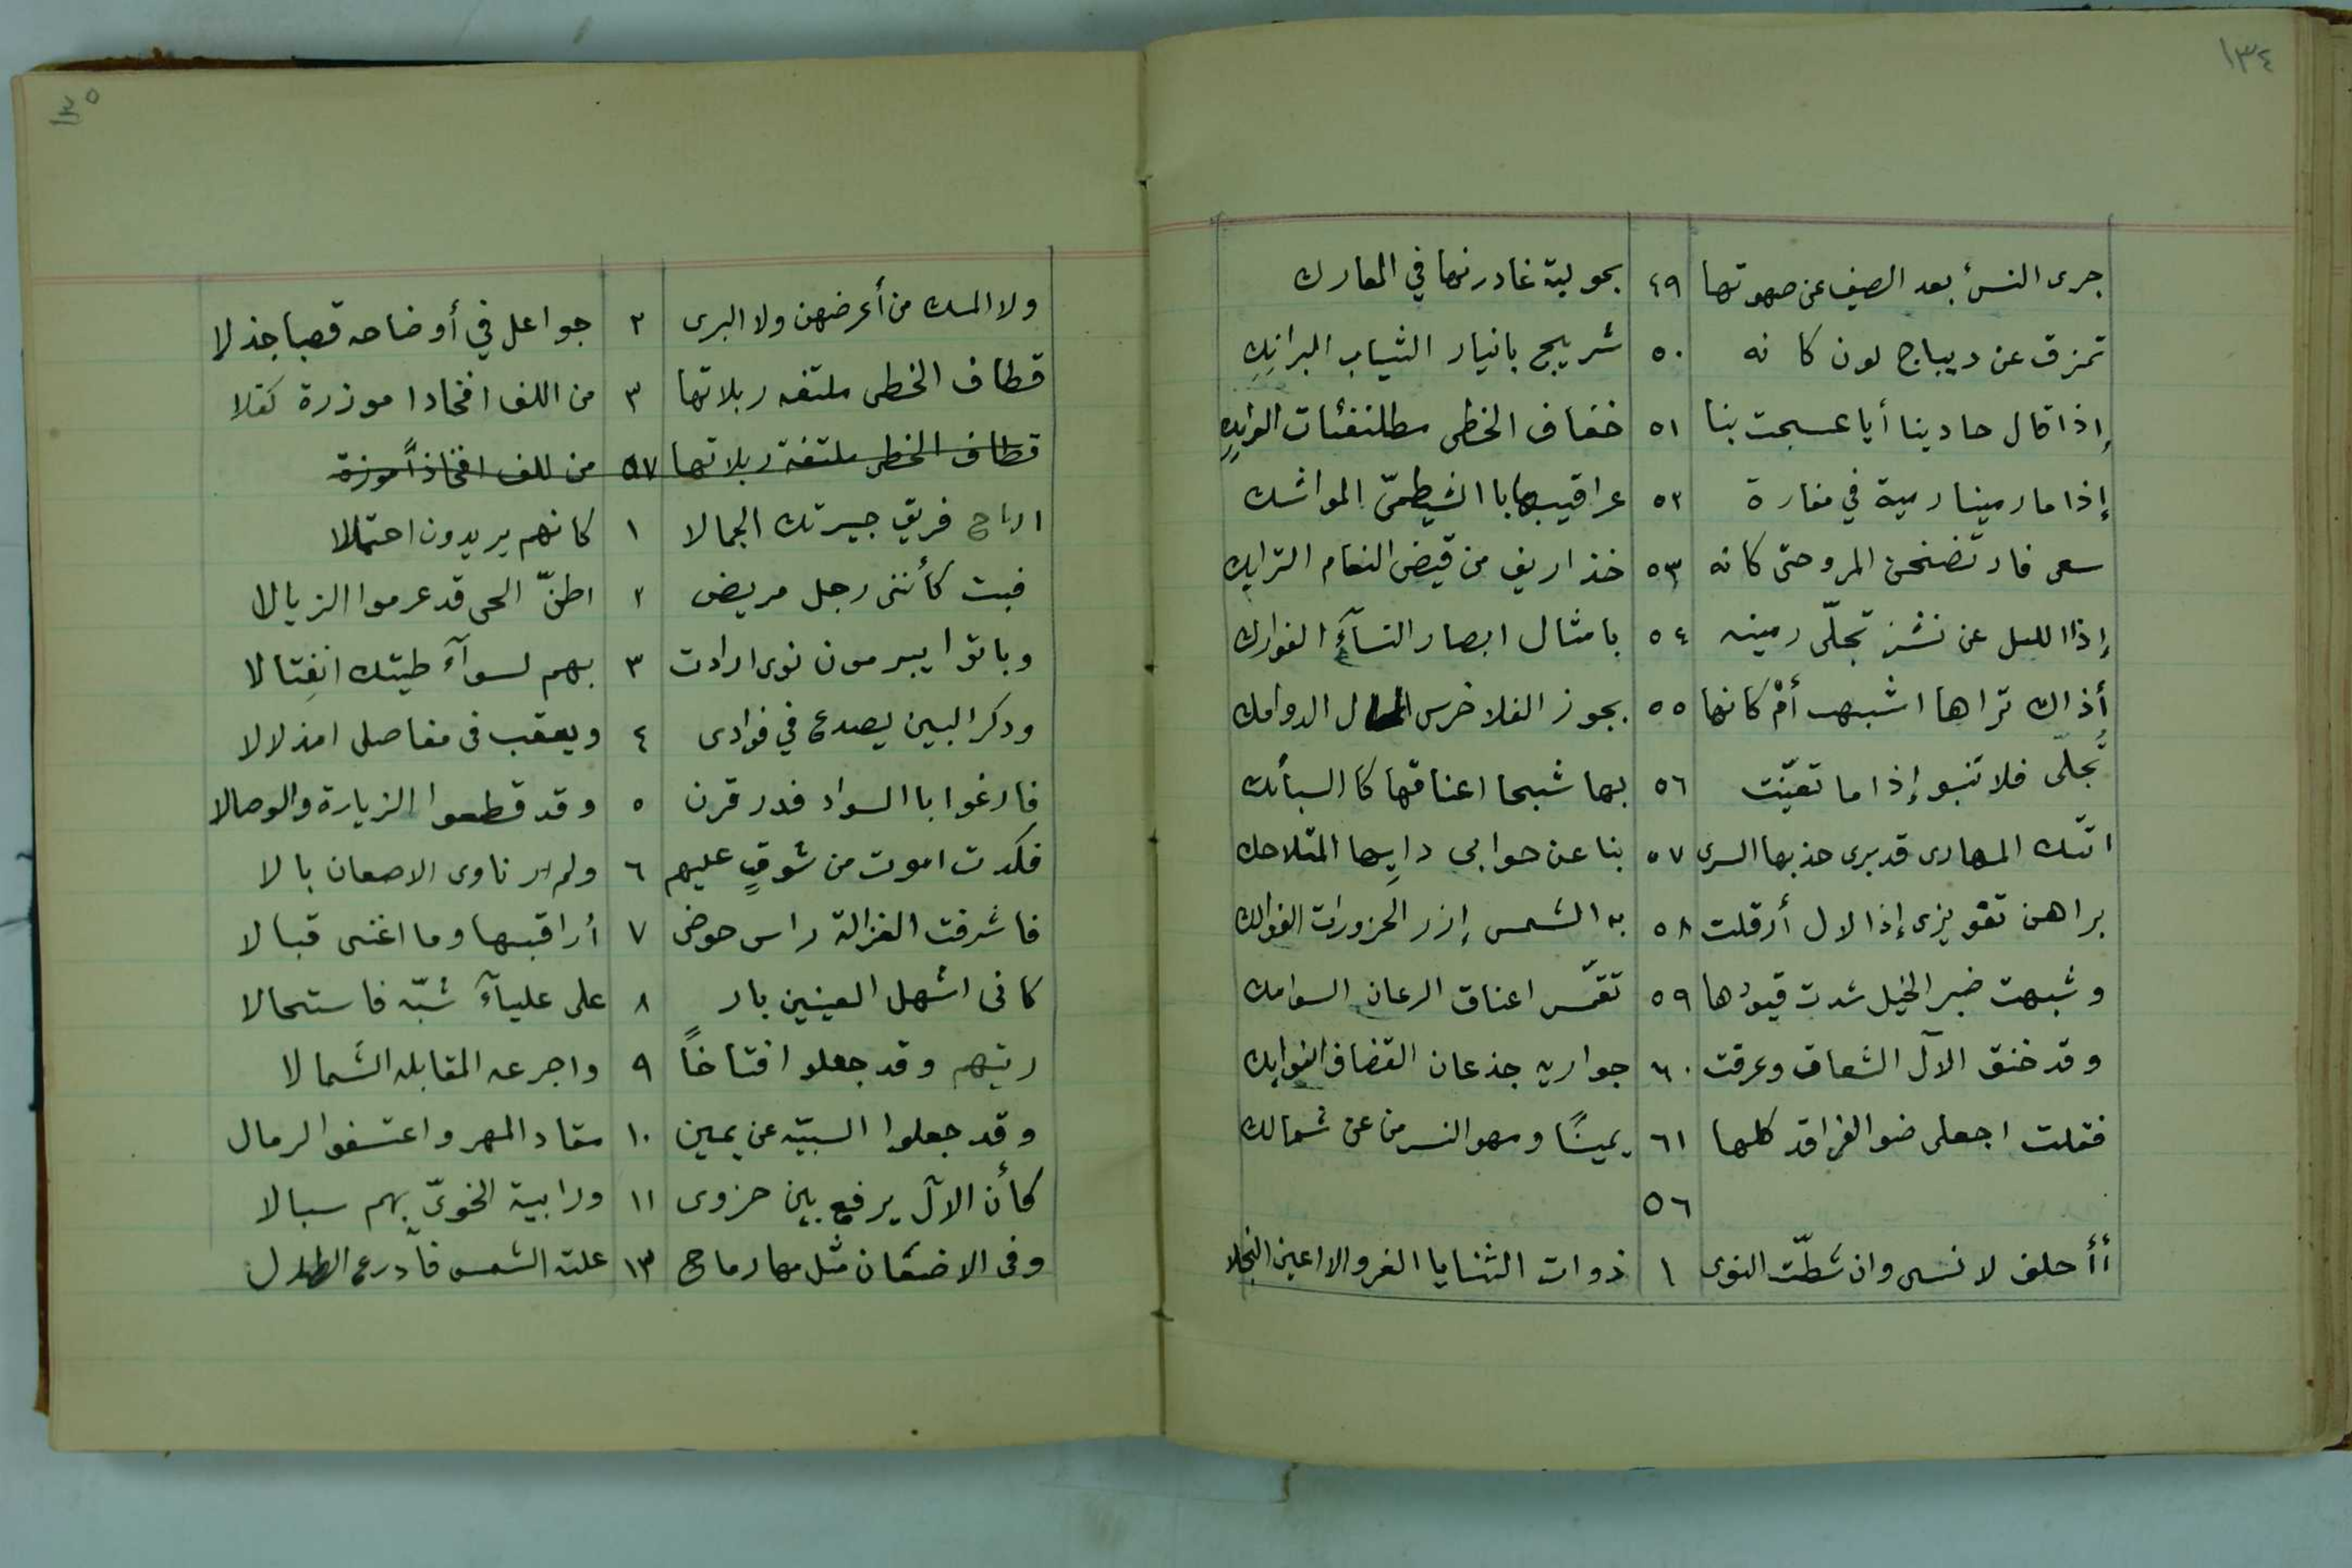 ١٣٤
جرى النسئ بعد الصيف عن صهوتها ٤٩ بحولية غادرنها في المعارك
تمزق عن ديباج لون كانه ٥٠ شريج بانيار الثياب البرانك
إذا قال حادينا أيا عسجت بنا ٥١ خفاف الخطى مطلنفئات العرايك
إذا ما رمينا رمية في مفازة ٥٢ عراقيبها با الشيظمىّ المواشك
سعى فارتضخن المرو حتى كانه ٥٣ خذاريف من قيض النعام الترايك
إذا الليل عن نشز تجلّى رمينه ٥٤ بامثال ابصار النسآء الفوارك
أذاك تراها اشبهت أمْ كانها ٥٥ بجوز الفلا خرس الدوامك
تُجلّى فلا تنبو إذا ما تعيّنت ٥٦ بها شبحا اعناقها كا السبأئك
اتتك المهارى قد برى حذبها السرى ٥٧ بنا عن حوابى دايها المتلاحك
براهن تفويزى إذا لال أرقلت ٥٨ به الشمس إزر الحزورات الفوالك
وشبهت ضبر الخيل شدت قيودها ٥٩ تقمّس اعناق الرعان السوامك
وقد خنق الآل الشعاف وعرقت ٦٠ جواريه جذعان القضاف النوابك
فقلت اجعلى ضو الفراقد كلها ٦١ يمينًا ومهو النسر من عن شمالك
٥٦
أأحلف لا نسى وان شطّت النوى ١ ذوات الثنايا الغر والاعين النجلا
١٣٥
ولا المسك من أعرضهن ولا البرى ٢ جواعل في أوضاحه قصبا جذلا
قطاف الخطى ملتفه ربلاتها ٣ من اللف افخادا موزرة كفلا
قطاف الخطى ملتفة ربلاتها ٥٧ من للف افخاذاً موزرة
اراح فريق جيرتك الجمالا ١ كانهم يريدون احتمالا
فبت كأننى رجل مريض ٢ اظنّ الحى قد عرموا الزيالا
وباتوا يبرمون نوى ارادت ٣ بهم لسوآء طيتك انفِتالا
ودكر البين يصدع في فوادى ٤ ويعقب فى مفاصلى امذلالا
فارغوا با السواد فدر قرن ٥ وقد قطعوا الزيارة والوصالا
فكدت اموت من شوقٍ عليهم ٦ ولم ار ناوى الاصعان بالا
فاشرفت الغزالة راس حوضى ٧ أراقبها وما اغنى قبالا
كانى اشهل العينين باز ٨ على عليآء شبّه فاستحالا
ريتهم وقد جعلو افتاخاً ٩ واجرعه المقابله الشمالا
وقد جعلوا السبيّه عن يمين ١٠ مقاد المهر واعتسفو الرمال
كأن الآل يرفع بين حزوى ١١ ورابية الخوىّ بهم سبالا
وفى الاضعان مثل مها رماح ١٣ علته الشمس فآدرع الظلال